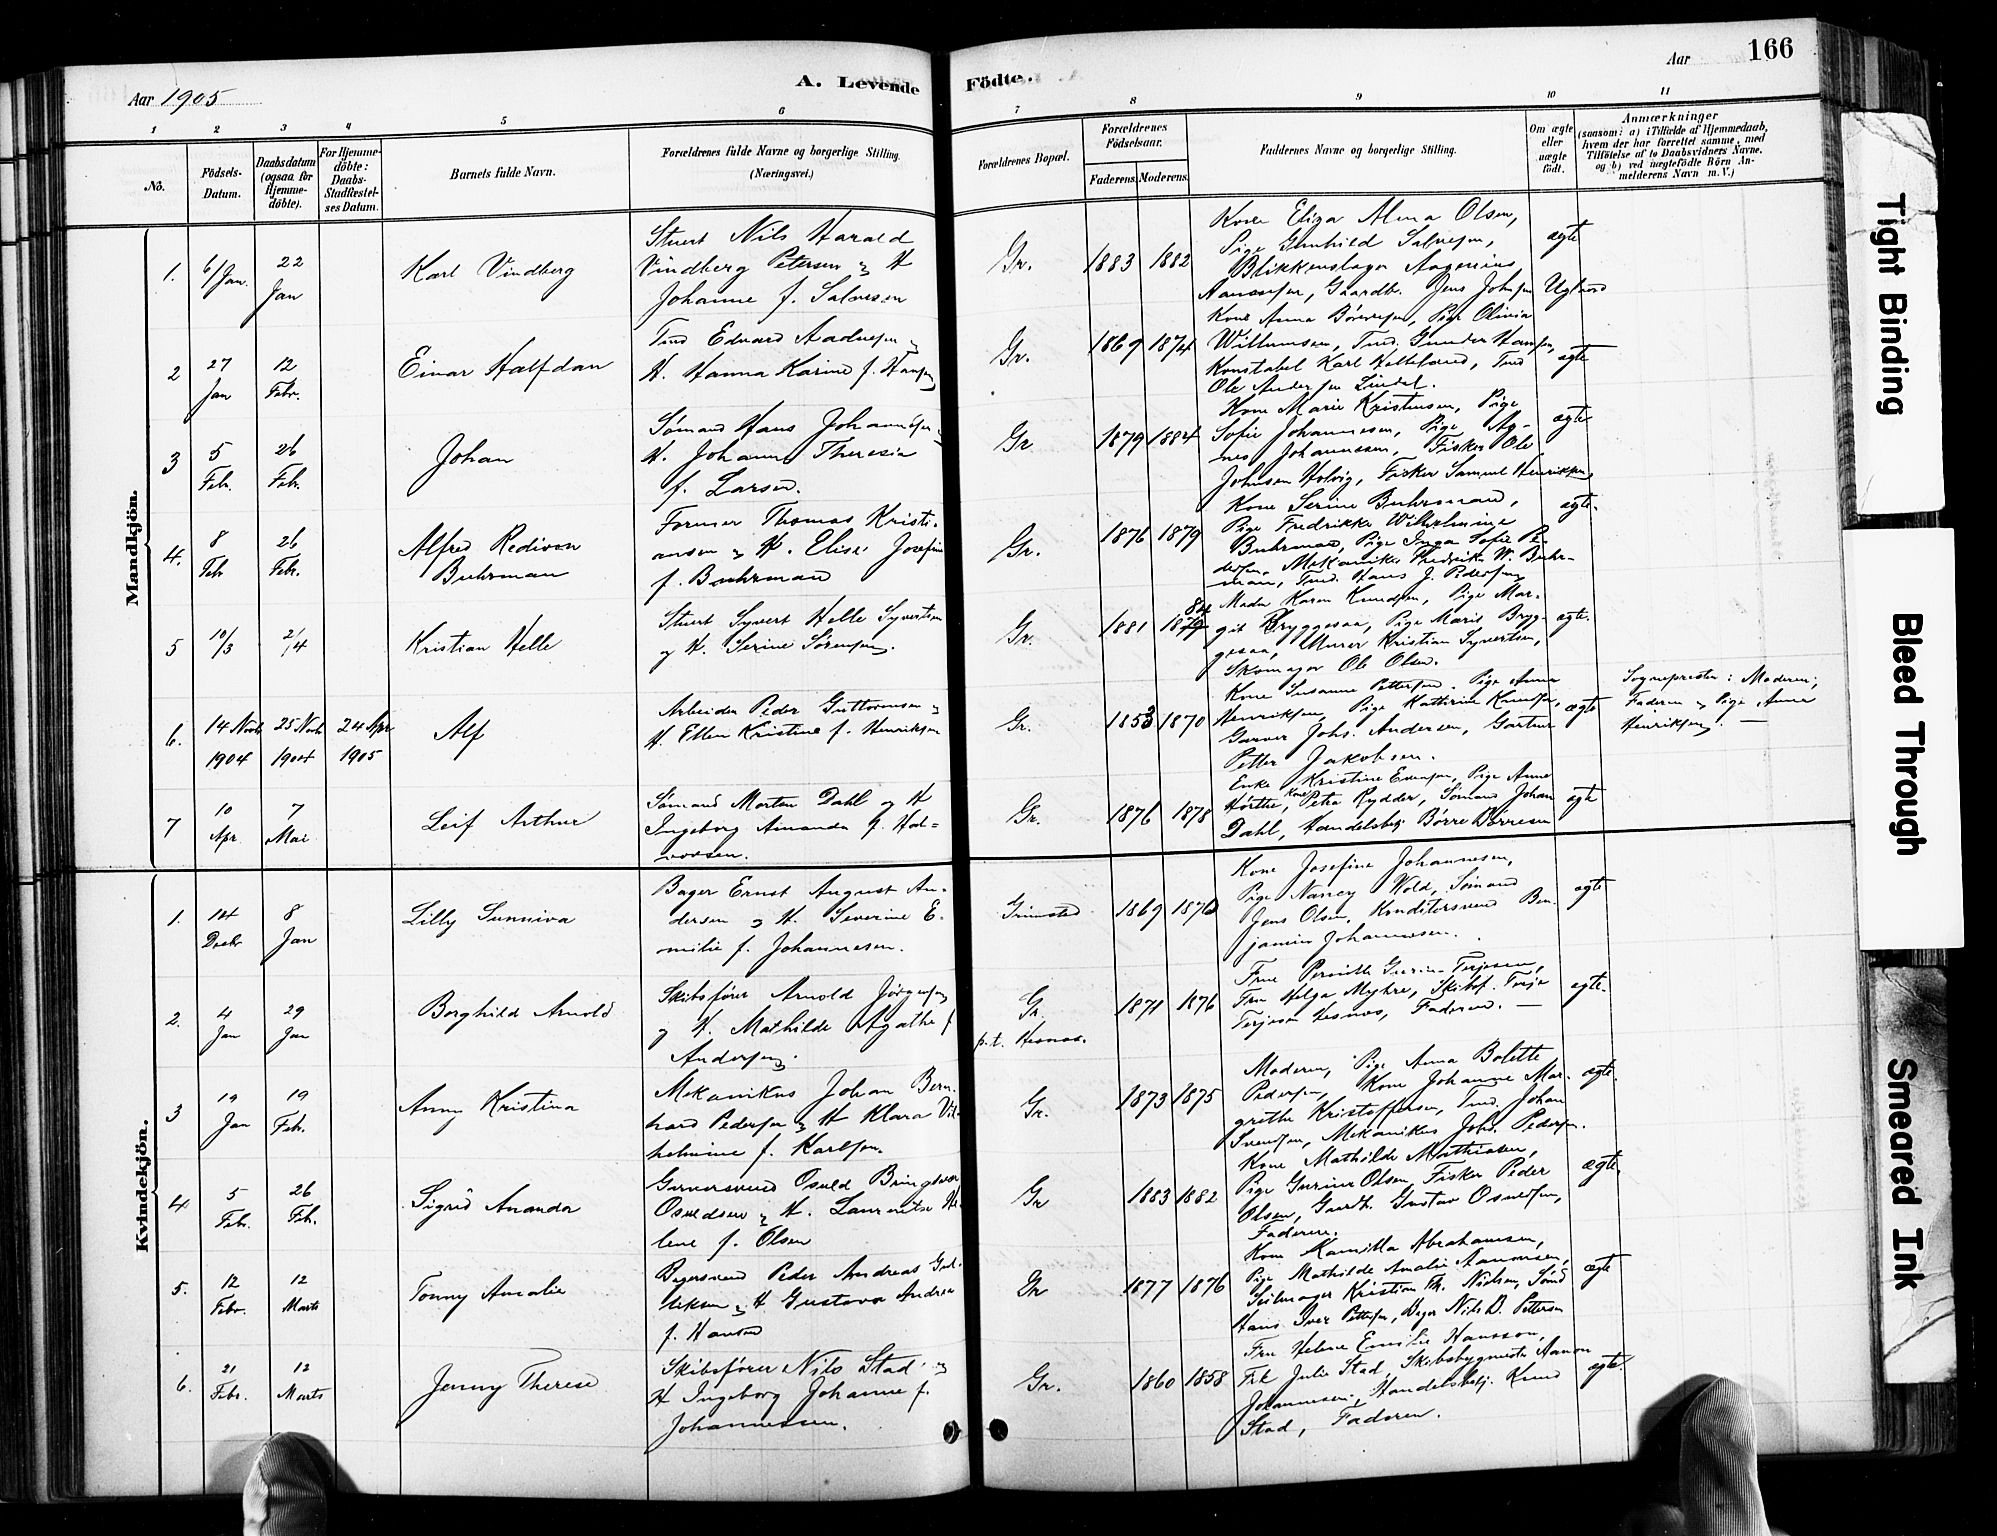 Aar 1905
A. Levende Födte.
Aar 166
1 2 3 4 5 6 7 8 9 10 11
No.
Födsels-Datum.
Daabsdatum (ogsaa for Hjemmedöbte).
For Hjemmedöbte: Daabs-Stadfæstelses Datum.
Barnets fulde Navn.
Forældrenes fulde Navne og borgerlige Stilling.
(Næringsvei.)
Forældrenes Bopæl.
Forældrenes Födselsaar.
Faderens. Moderens.
Faddernes Navne og borgerlige Stilling.
Om ægte eller uægte födt.
Anmærkninger
(saasom: a) i Tilfælde af Hjemmedaab, hvem der har forrettet samme, med Tilföielse af to Daabsvidners Navne, og b) ved uægtefödte Börn Anmelderens Navn m. V.)
Mandkjön.
1. 6/Jan. 22 Jan Karl Vindberg
Stuert Nils Harald
Vindberg Petersen og H
Johanne f. Salvesen
Gr. 1883 1882
Kone Eliza Alma Olsen,
Pige Gunhild Salvesen,
Blikkenslager
Gaardb. Jens Johnsen
ægte
2 27 Jan 12 Febr. Einar Halfdan
Tmd Edvard Aadnesen og
H. Hanna Karine f. Hansen
Gr. 1869 1874
Kone Anna Børresen, Pige Olivia
Willumsen, Tmd. Gunder Hansen,
Konstabel Karl Helleland, Tmd
Ole Andersen Lindal.
ægte
3 5 Febr. 26 Febr. Johan
Sømand Hans Johannesen og
H. Johanne Theresia
f. Larsen.
Gr 1879 1884
Kone Marie Kristensen, Pige
Sofie Johannesen, Pige Ag-
nes Johannesen, Fisker Ole
Johnsen Holvig, Fisker Samuel Henriksen
ægte
4. 8 Feb 26 Feb. Alfred Redivan
Buhrman
Former Thomas Kristi-
ansen og H. Elise Josefine
f. Buhrman
Gr. 1876 1879
Kone Serine Buhrman,
Pige Fredrikke Wilhelmine
Buhrman, Pige Inga Sofie Pe-
dersen, Mekaniker Fredrik W. Buhr-
man, Tmd. Hans J. Pedersen
ægte.
5 10/3 2/4 Kristian Helle
Stuert Syvert Helle Syvertsen
og H. Serine Sørensen.
Gr. 1881 1879 84
Mada Karen Knudsen, Pige Mar-
git Bryggesaa, Pige Maris Bryg-
gesaa, Murer Kristian Syvertsen,
Skomager Ole Olsen.
ægte.
6. 14 Novb 1904 25 Novb 1904 24 Apr 1905 Alf
Arbeider Peder Guttormsen og
H. Ellen Kristine f. Henriksen
Gr. 1853 1870
Kone Susanne Pettersen. Pige Anna
Henriksen, Pige Kathrine Knudsen,
Garver Johs. Andersen, Gartner
Petter Jakobsen.
ægte
Sogneprester: Moderen;
Faderen og Pige Anna
Henriksen. —
7 10 Apr 7 Mai Leif Arthur
Sømand Morten Dahl og H
Ingeborg Amanda f. Hal-
vorsen.
Gr. 1876 1878
Enke Kristine Evensen, Pige Anne
Hørthe, Kone Petra Rydder, Sømand Johan
Dahl, Handelsbetj. Børre Børresen
ægte
Kvindekjön.
1. 14 Decbr 8 Jan Lilly Sunniva
Bager Ernst August An-
dersen og H. Severine E-
milie f. Johannesen.
Grimstad 1869 1870
Kone Josefine Johannesen,
Pige Nancy Wold, Sømand
Jens Olsen, Konditorsvend Ben-
jamin Johannesen.
ægte
2. 4 Jan 29 Jan Borghild Arnold
Skibsfører Arnold Jørgensen
og H. Mathilde Agathe f
Andersen.
Gr. p.t. Hesnæs. 1871 1876
Frue Terjesen,
Fru Helga Myhre, Skibsf. Terje
Terjesen Hesnæs, Faderen. —
ægte.
3 19 Jan 19 Feb. Anny Kristina
Mekanikus Johan Bern-
hard Pedersen og H Klara Vil-
helmine f. Karlsen.
Gr. 1873 1875
Moderen, Pige Anna Bolette
Pedersen, Kone Johanne Mar-
grethe Kristoffersen, Tmd. Johan
Svendsen, Mekanikus Johs. Pedersen.
ægte.
4 5 Febr. 26 Feb. Sigrid Amanda
Garversvend Osuld Bringsver
Osuldsen og H. Laurentze He-
lene f. Olsen
Gr 1883 1882
Kone Mathilde Mathiasen,
Pige Gurine Olsen, Fisker Peder
Olsen, Gaardb. Gustav Osuldsen,
Faderen.
ægte
5. 12 Febr. 12 Marts Tonny Amalie
Bagersvend Peder Andreas Gul-
liksen og H Gustava Andrea
f. Hansen
Gr 1877 1876
Kone Kamilla Abrahamsen,
Pige Mathilde Amalie Aanonsen,
Seilmager Kristian Th. Nielsen, Sømd
Hans Iver Pettersen, Bager Nils D. Pettersen
ægte
6. 21 Febr. 12 Marts Jenny Therese
Skibsfører Nils Stad og
H Ingeborg Johanne f.
Johannessen.
Gr. 1860 1858
Fru Helene Emilie Hansson,
Frk Julie Stad, Skibsbygmester Aanon
Johannesen, Handelsbetj. Knud
Stad, Faderen.
ægte
Tight Binding
Bleed Through
Smeared Ink